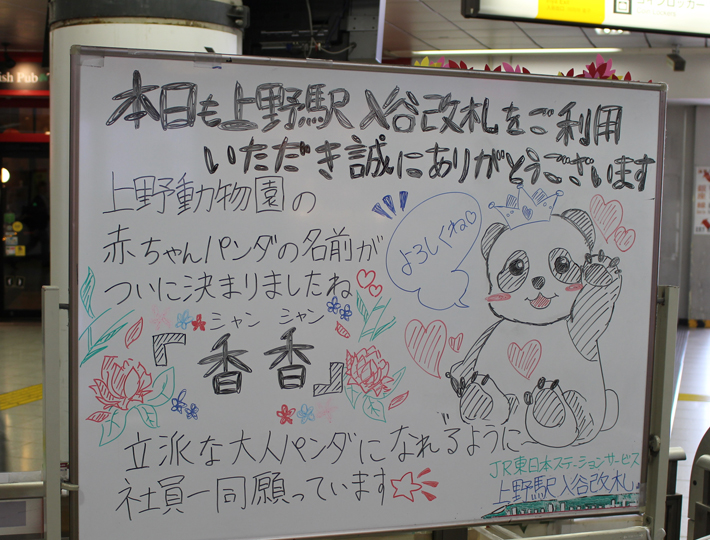 本日も上野駅入谷改札をご利用
いただき誠にありがとうございます
上野動物園の
赤ちゃんパンダの名前が
ついに決まりましたね
シャン シャン
『香香』
よろしくね♡
立派な大人パンダになれるように
社員一同願っています☆
JR東日本ステーションサービス
上野駅入谷改札
コインロッカー
ish Pub